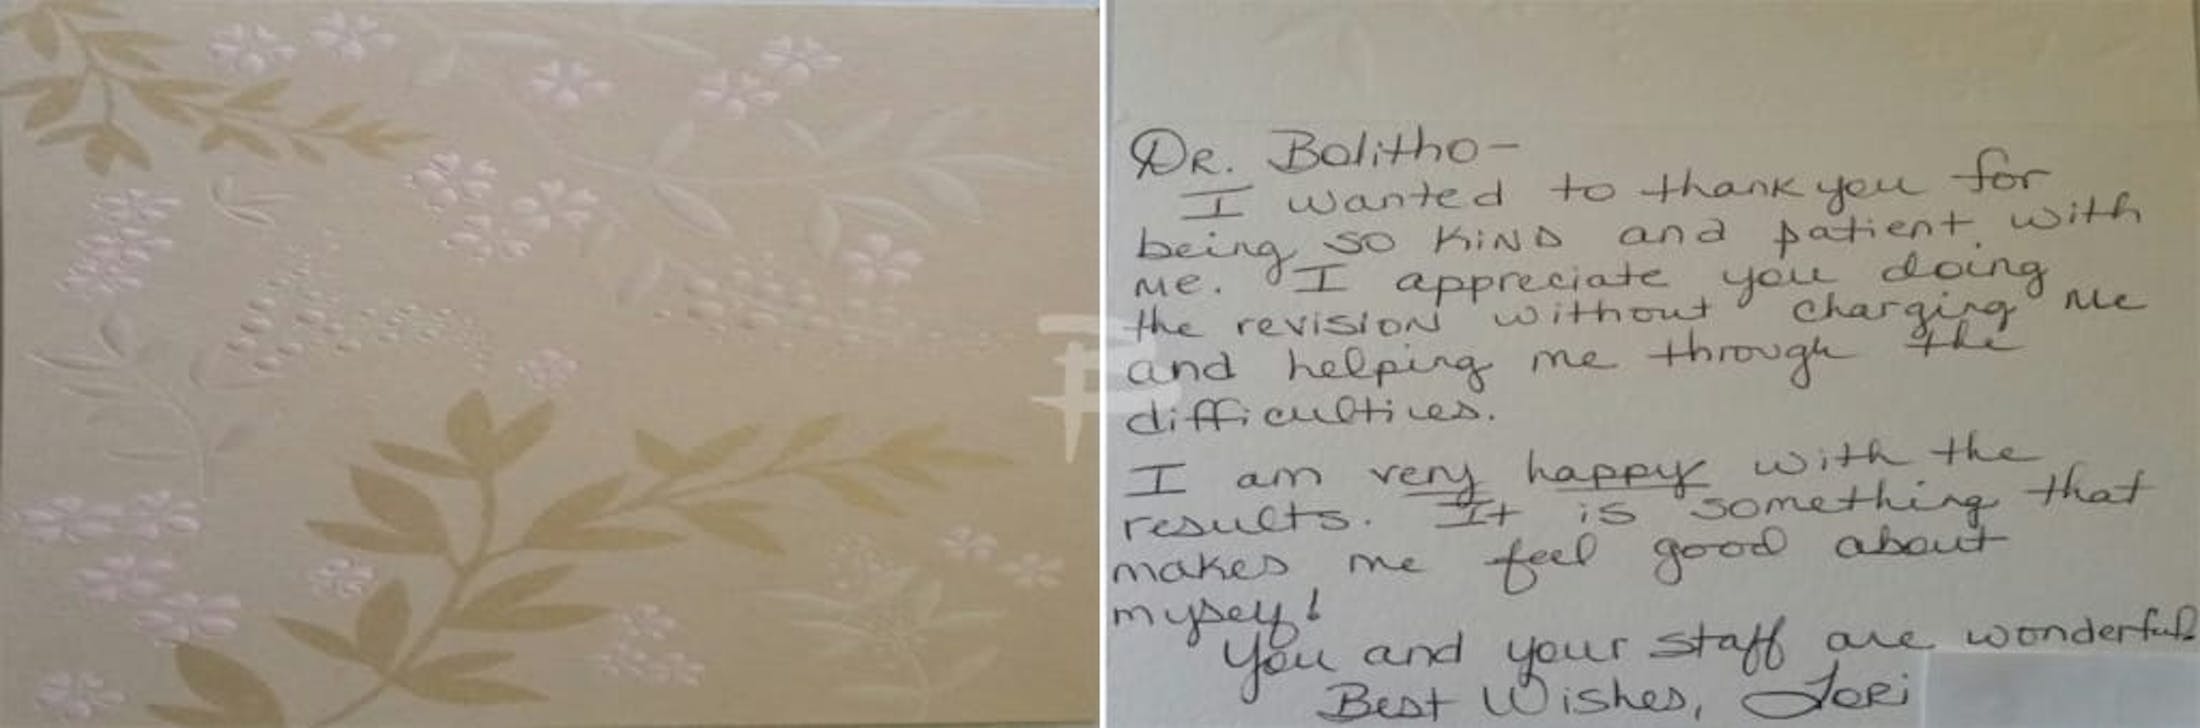 DR. Bolitho-
I wanted to thank you for
being so KiND and patient with
me. I appreciate you doing
the revision without charging me
and helping me through the
difficultives.
I am very happy with the
results. It is something that
makes me feel good about
myself!
You and your staff are wonderful
Best Wishes, Tori